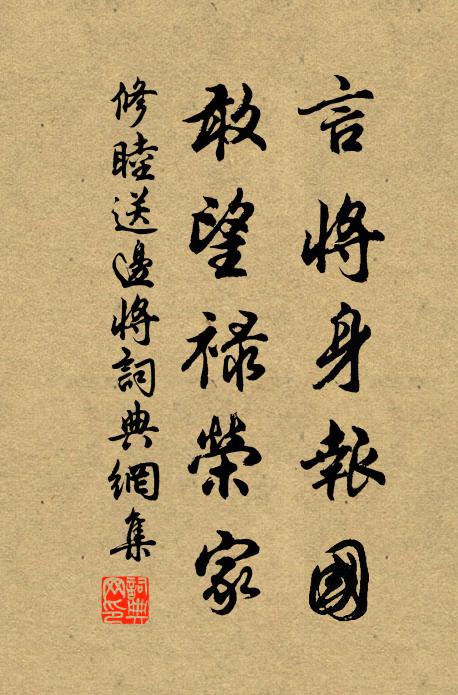 言將身報國
敢望祿榮家
修睦送邊將詞典網集
詞典网印